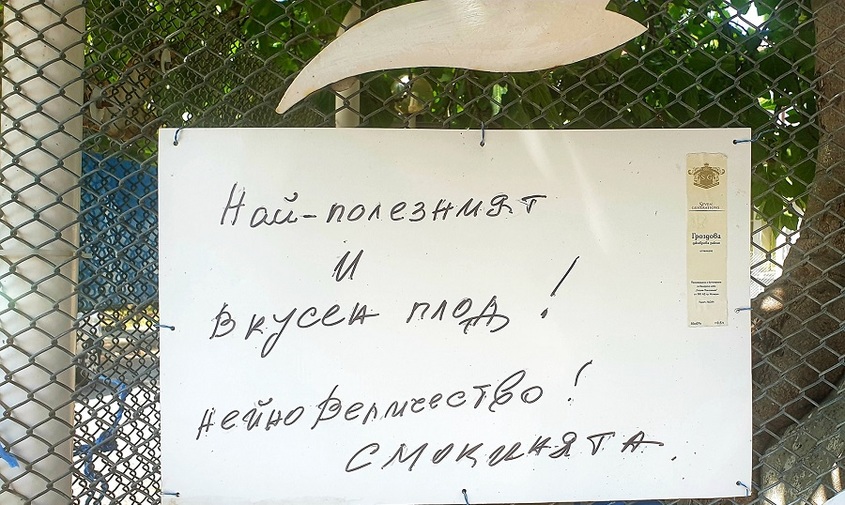 Най-полезният
и
вкусен плод!
Нейно Величество!
смокинята.
SG
SEVEN
GENERATIONS
Гроздова